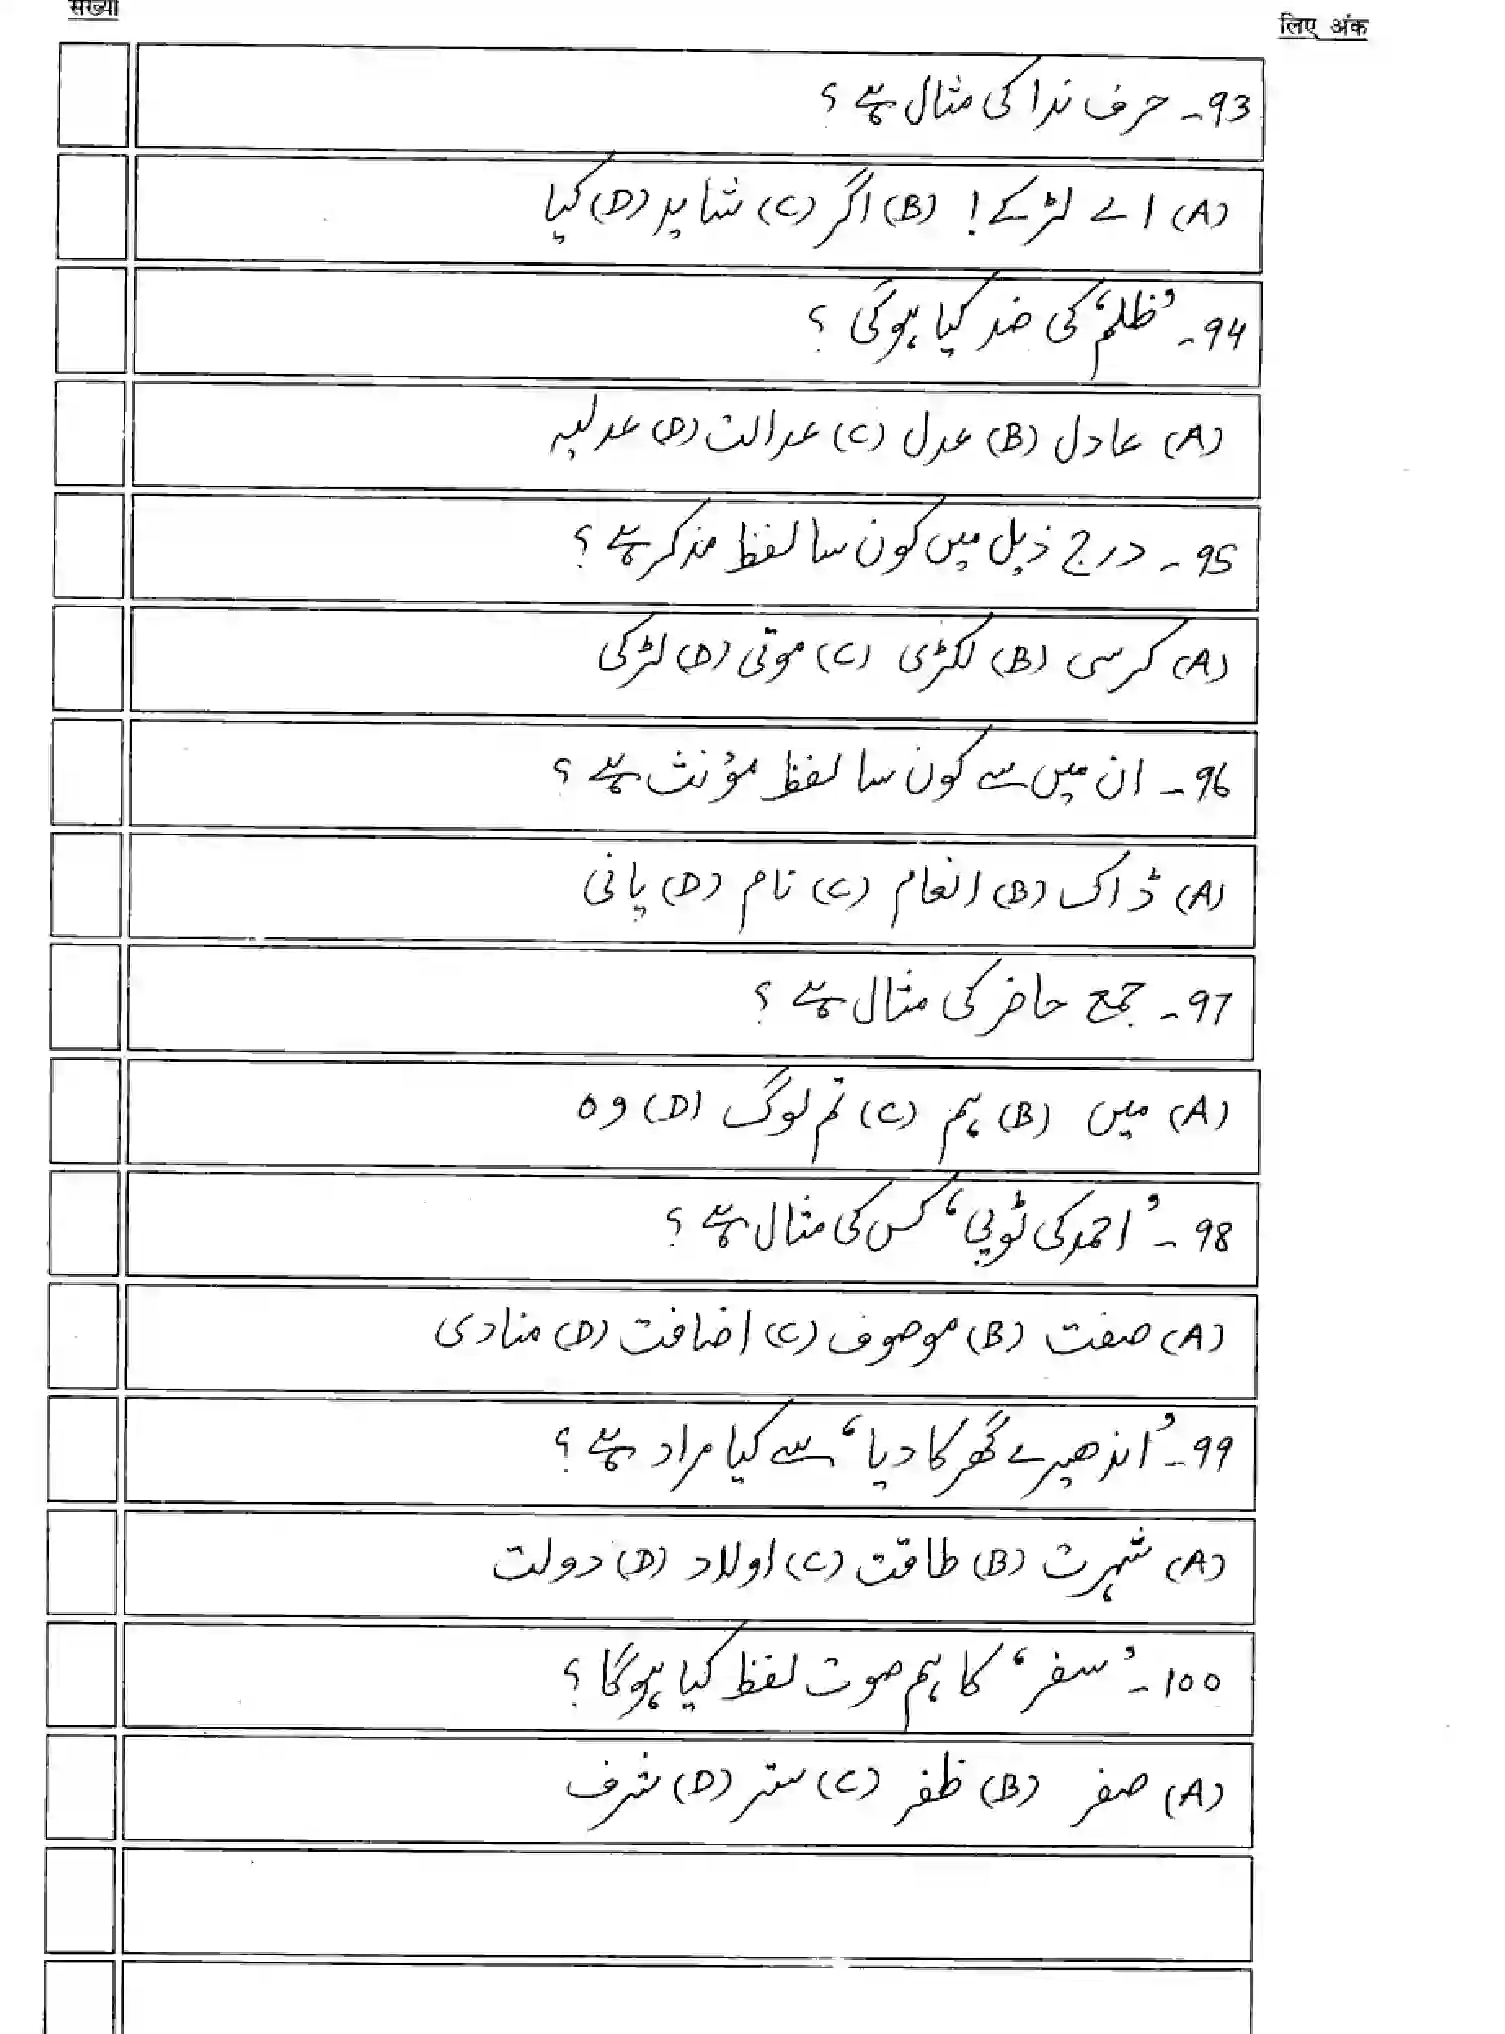 संख्या
लिए अंक
93- حرف ندا کی مثال ہے ؟
(A) اے لڑکے ! (B) اگر (C) شاید (D) کیا
94- ’ظلم‘ کی ضد کیا ہوگی ؟
(A) عادل (B) عدل (C) عدالت (D) عدلیہ
95- درج ذیل میں کون سا لفظ مذکر ہے ؟
(A) کرسی (B) لکڑی (C) موتی (D) لڑکی
96- ان میں سے کون سا لفظ مؤنث ہے ؟
(A) ڈاک (B) انعام (C) نام (D) پانی
97- جمع حاضر کی مثال ہے ؟
(A) میں (B) ہم (C) تم لوگ (D) وہ
98- ’احمد کی ٹوپی‘ کس کی مثال ہے ؟
(A) صفت (B) موصوف (C) اضافت (D) منادی
99- ’اندھیرے گھر کا دیا‘ سے کیا مراد ہے ؟
(A) شہرت (B) طاقت (C) اولاد (D) دولت
100- ’سفر‘ کا ہم صوت لفظ کیا ہوگا ؟
(A) صفر (B) ظفر (C) ستر (D) شرف